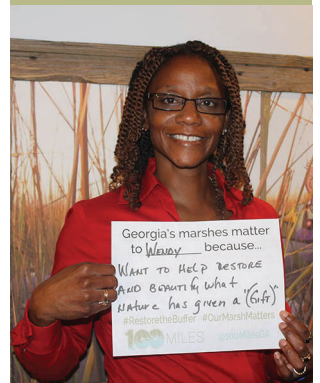 Georgia's marshes matter
to Wendy because...
Want to help restore
and beautify what
nature has given a "(Gift)"
#RestoretheBuffer #OurMarshMatters
100 MILES